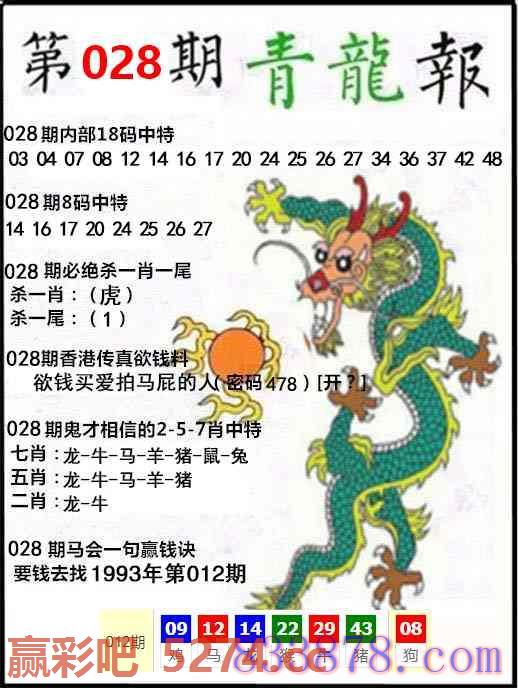 第028期青龍報
028期内部18码中特
03 04 07 08 12 14 16 17 20 24 25 26 27 34 36 37 42 48
028期8码中特
14 16 17 20 24 25 26 27
028期必绝杀一肖一尾
杀一肖：(虎)
杀一尾：(1)
028期香港传真欲钱料
欲钱买爱拍马屁的人(密码478)[开?]
028期鬼才相信的2-5-7肖中特
七肖：龙-牛-马-羊-猪-鼠-兔
五肖：龙-牛-马-羊-猪
二肖：龙-牛
028期马会一句赢钱诀
要钱去找1993年第012期
012期 09 12 14 22 29 43 08
鸡 马 龙 猴 牛 猪 狗
赢彩吧
838878.com